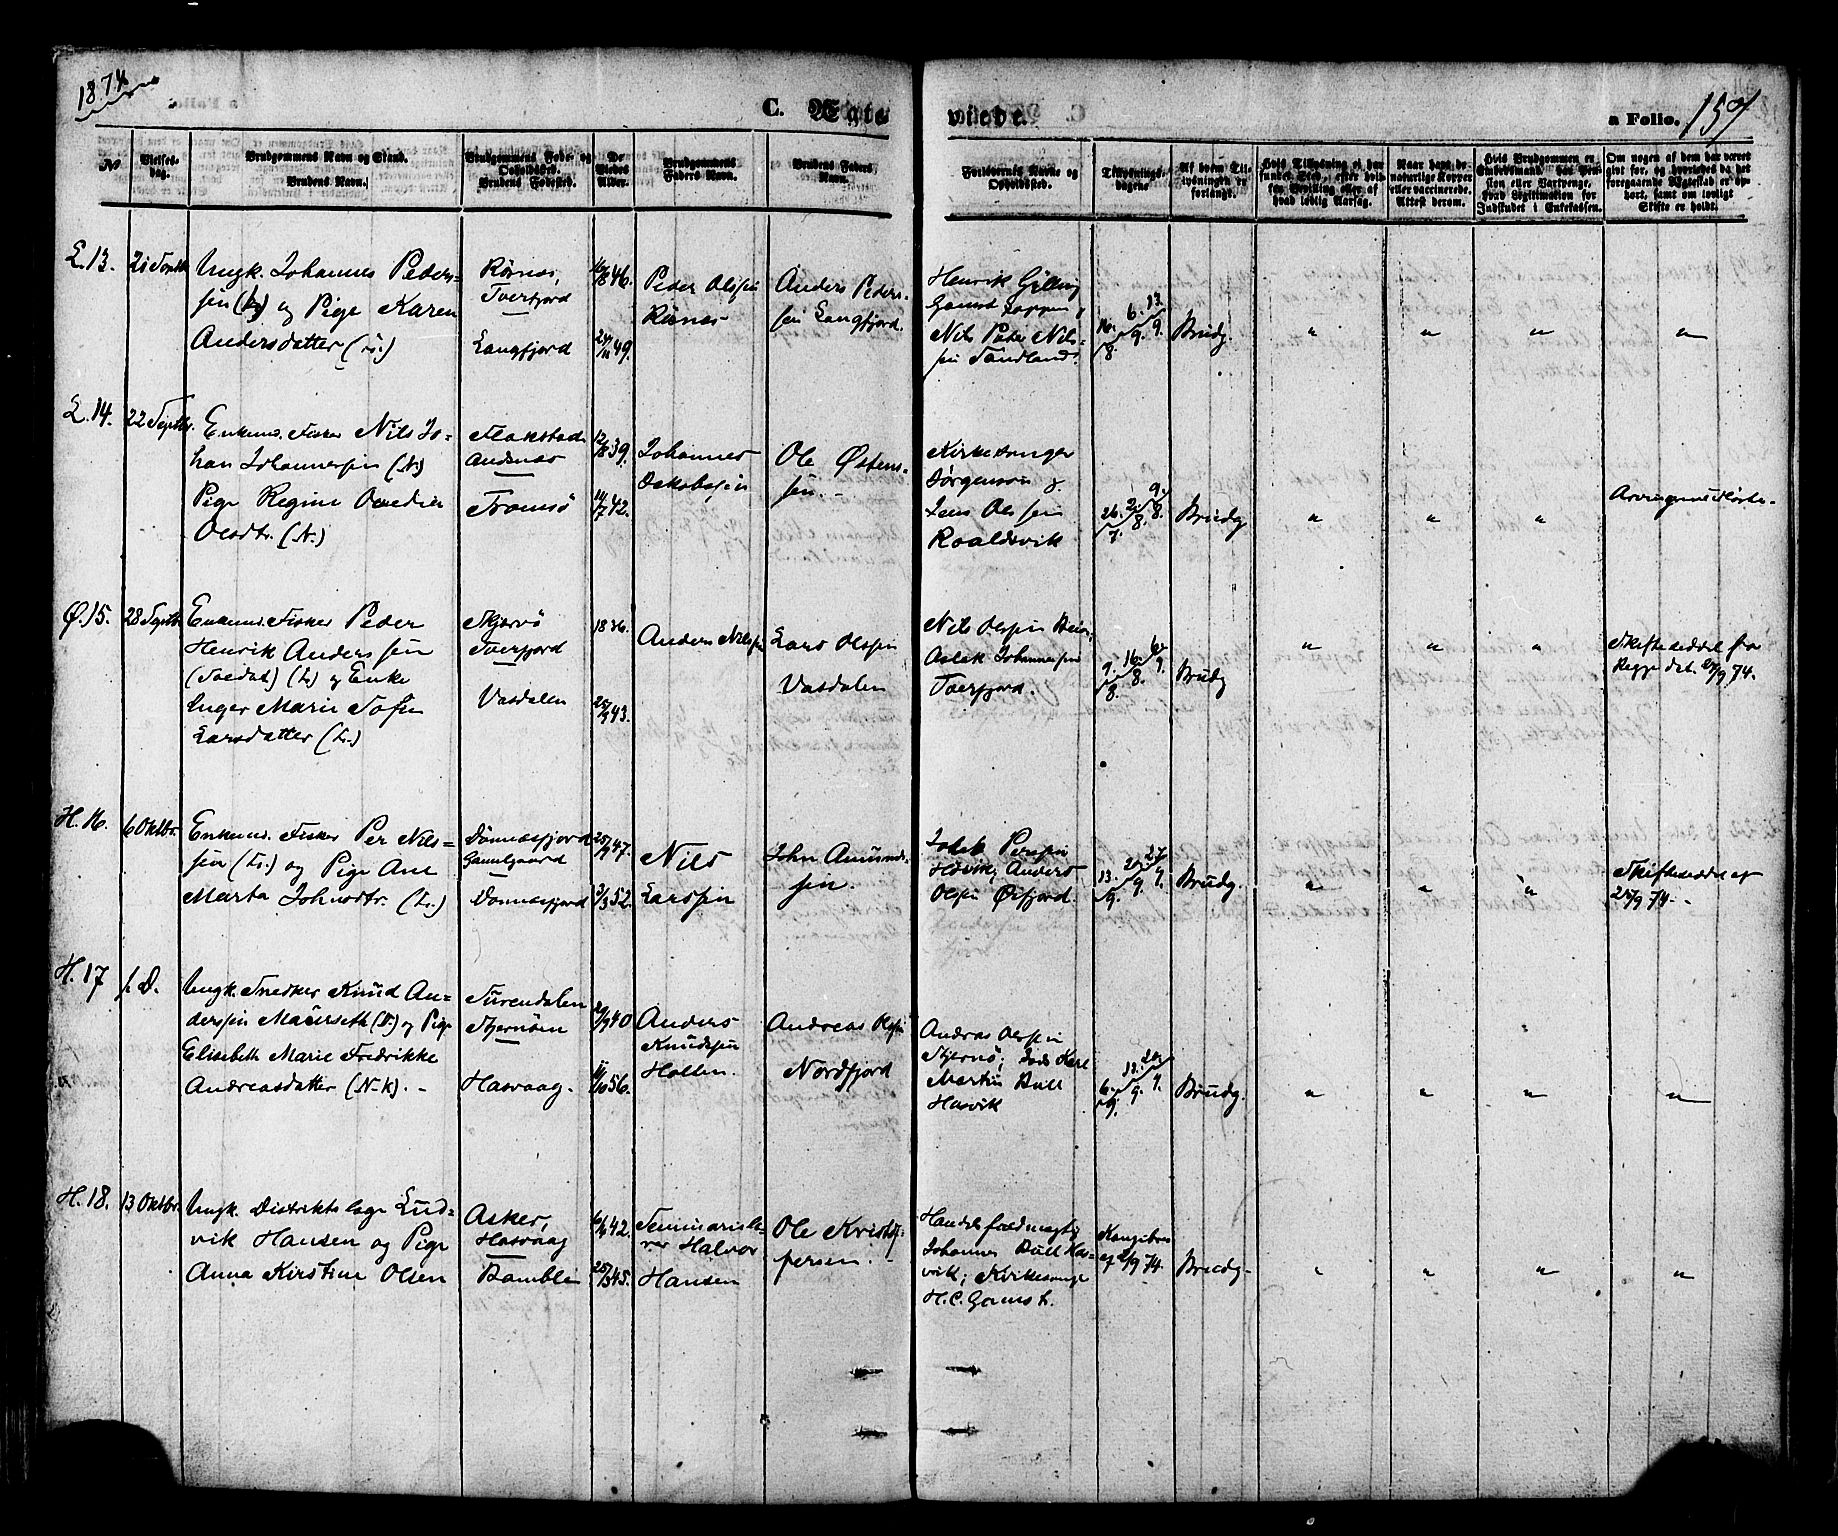 1874
C. Ægte
viede.
a Folio. 159
No
Vielses-
dag.
Brudgommens Navn og Stand.
Brudens Navn.
Brudgommens Føde- og
Opholdssted.
Brudens Fødested.
De
Viedes
Alder.
Brudgommens
Faders Navn.
Brudens Faders
Navn.
Forlovernes Navne og
Opholdssted.
Tillysnings-
dagene
Af hvem Til-
lysningen er
forlangt.
Hvis Tillysning ei har
fundet Sted, efter hvil-
ken Bevilling eller af
hvad lovlig Aarsag.
Naar havt de
naturlige Kopper
eller vaccinerede.
Attest derom.
Hvis Brudgommen er
Enkemand
Pen-
sion eller Vartpenge,
hvad Legitimation for
Indskudet i Enkekassen.
Om nogen af dem har været
gift før, og hvorledes da det
foregaaende Ægteskab er op-
hørt, samt om lovligt
Skifte er holdt.
L. 13.
21 Septbr
Ungk. Johannes Peders-
sen (L) og Pige Karen
Andersdatter (L.)
Tverfjord
Langfjord
46.
49.
Peder Olsen
Anders Peders-
sen Langfjord.
Henrik
Nils Peder Nils-
sen Sandland.
16/8 6/9 13/9
Brudg.
" " " "
L. 14.
22 Septbr.
Enkem. Fisker Nils Jo-
han Johannessen (N.)
Pige Regine
Olsdtr. (N.)
Flakstad
Andenæs
Tromsø
12/8 39.
14/7 42.
Johannes
Jakobsen
Ole Østens-
sen.
Kirkesanger
Jørgensen &
Jens Olssen
Roaldsvik
26/7 2/8 9/8
Brudg
" " "
Ø. 15.
28 Septbr
Enkem. Fisker Peder
Henrik Anderssen
(L) og Enke
Inger Marie Sofie
Larsdatter (L.)
Skjervø
Tverfjord
Vasdalen
1836.
43.
Anders Nilsen
Lars Olsen
Vasdalen
Nils Olsen
Aslak Johannessen
Tverfjord.
9/8 16/8 6/9
Brudg
" " "
Skifteseddel fra
Repp. dat. 9 74.
H. 16.
6 Oktbr.
Enkem. Fisker Per Nils-
sen (L.) og Pige Ane
Marta Johnsdtr. (L.)
Dønnesfjord
Gamelgaard
Dønnesfjord
47.
3/3 52.
Nils
Larssen
John Amund-
sen.
Persen
Hasvik, Anders
Olsen Øxfjord.
13/9 20/9 27/9
Brudg.
" " "
Skifteseddel af
9 74.
H. 17
s. D.
Ungk. Snedker Knud An-
derssen (N.) og Pige
Elisabeth Marie Fredrikke
Andreasdatter (N-k).
Surendalen
Stjernøen
Hasvaag.
40
56.
Anders
Knudsen
Holten
Andreas Olsen
Nordfjord
Andreas Olsen
Stjernø; Karl
Martin Bull
Hasvik
6/9 13/9 20/9
Brudg.
" " " "
H. 18.
13 Oktbr.
Ungk. Distriktslæge Lud-
vik Hansen og Pige
Anna Kirstine Olsen
Asker,
Hasvaag
Bamble
42.
45.
Seminarielæ-
rer Halvor
Hansen
Ole Kristof-
persen.
Handelsfuldmægtig
Johannes Bull Has-
vik; Kirkesanger
H. C. Gamst.
Kongebrev
af 9 74.
Brudg.
" " " "